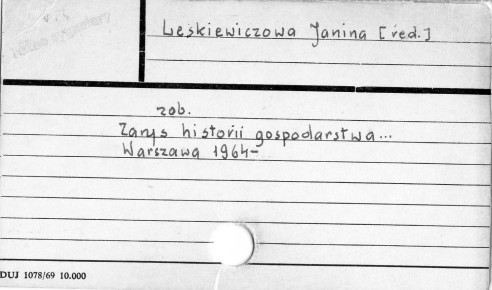 Leskiewiczowa Janina [red.]
zob.
Zarys historii gospodarstwa...
Warszawa 1964-
DUJ 1078/69 10.000